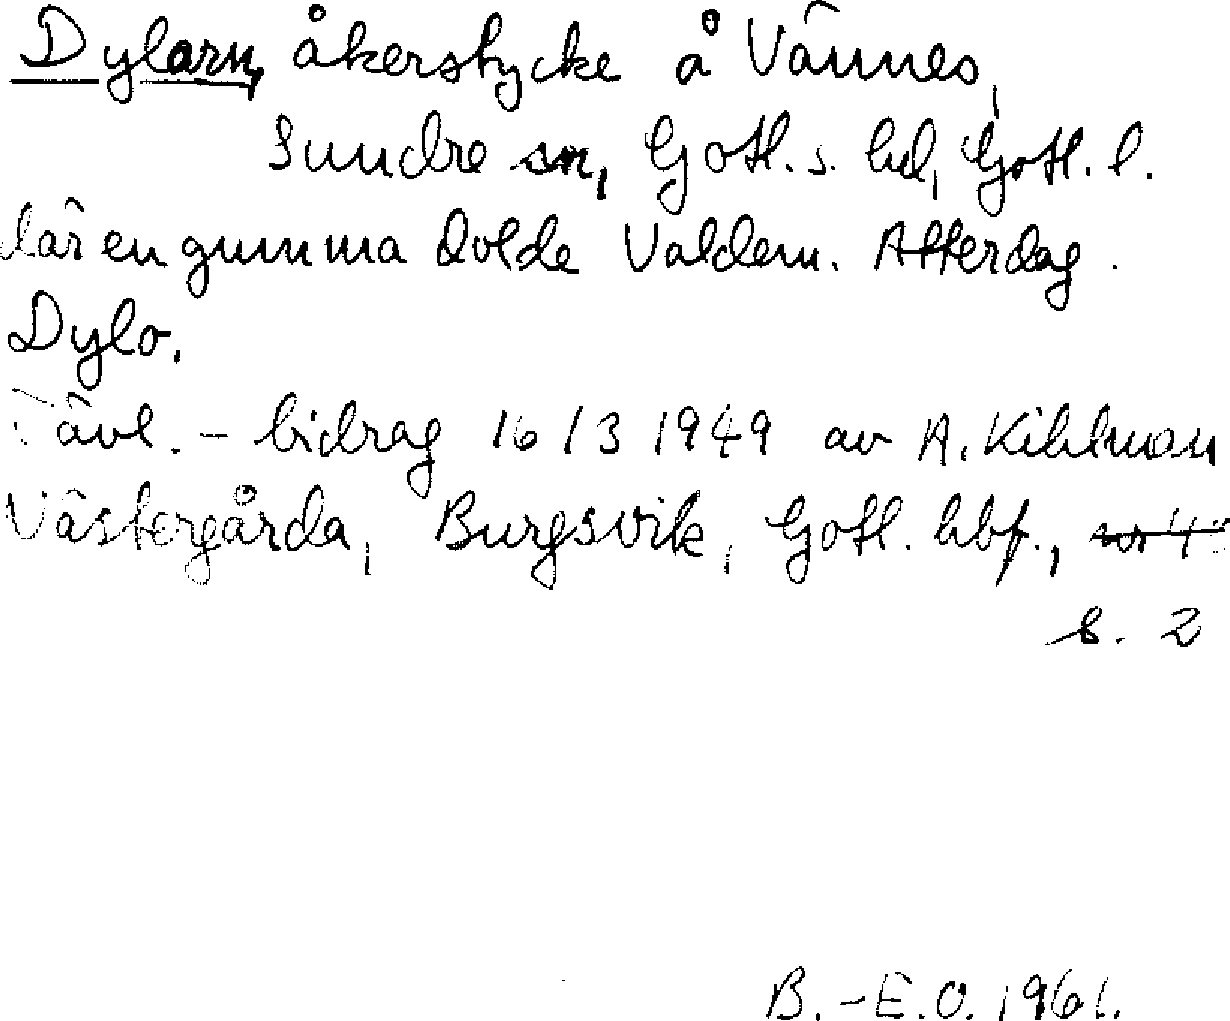 Dylarn, åkerstycke å Vännes,
Sundre sn, Gotl. s. hd, Gotl. l.
där en gumma dolde Valdem. Atterdag.
Dylo.
Tävl. - bidrag 16/3 1949 av A. Kihlman
Västergårda, Burgsvik, Gotl. hbf.,
s. 2
B.-E.O. 1961.